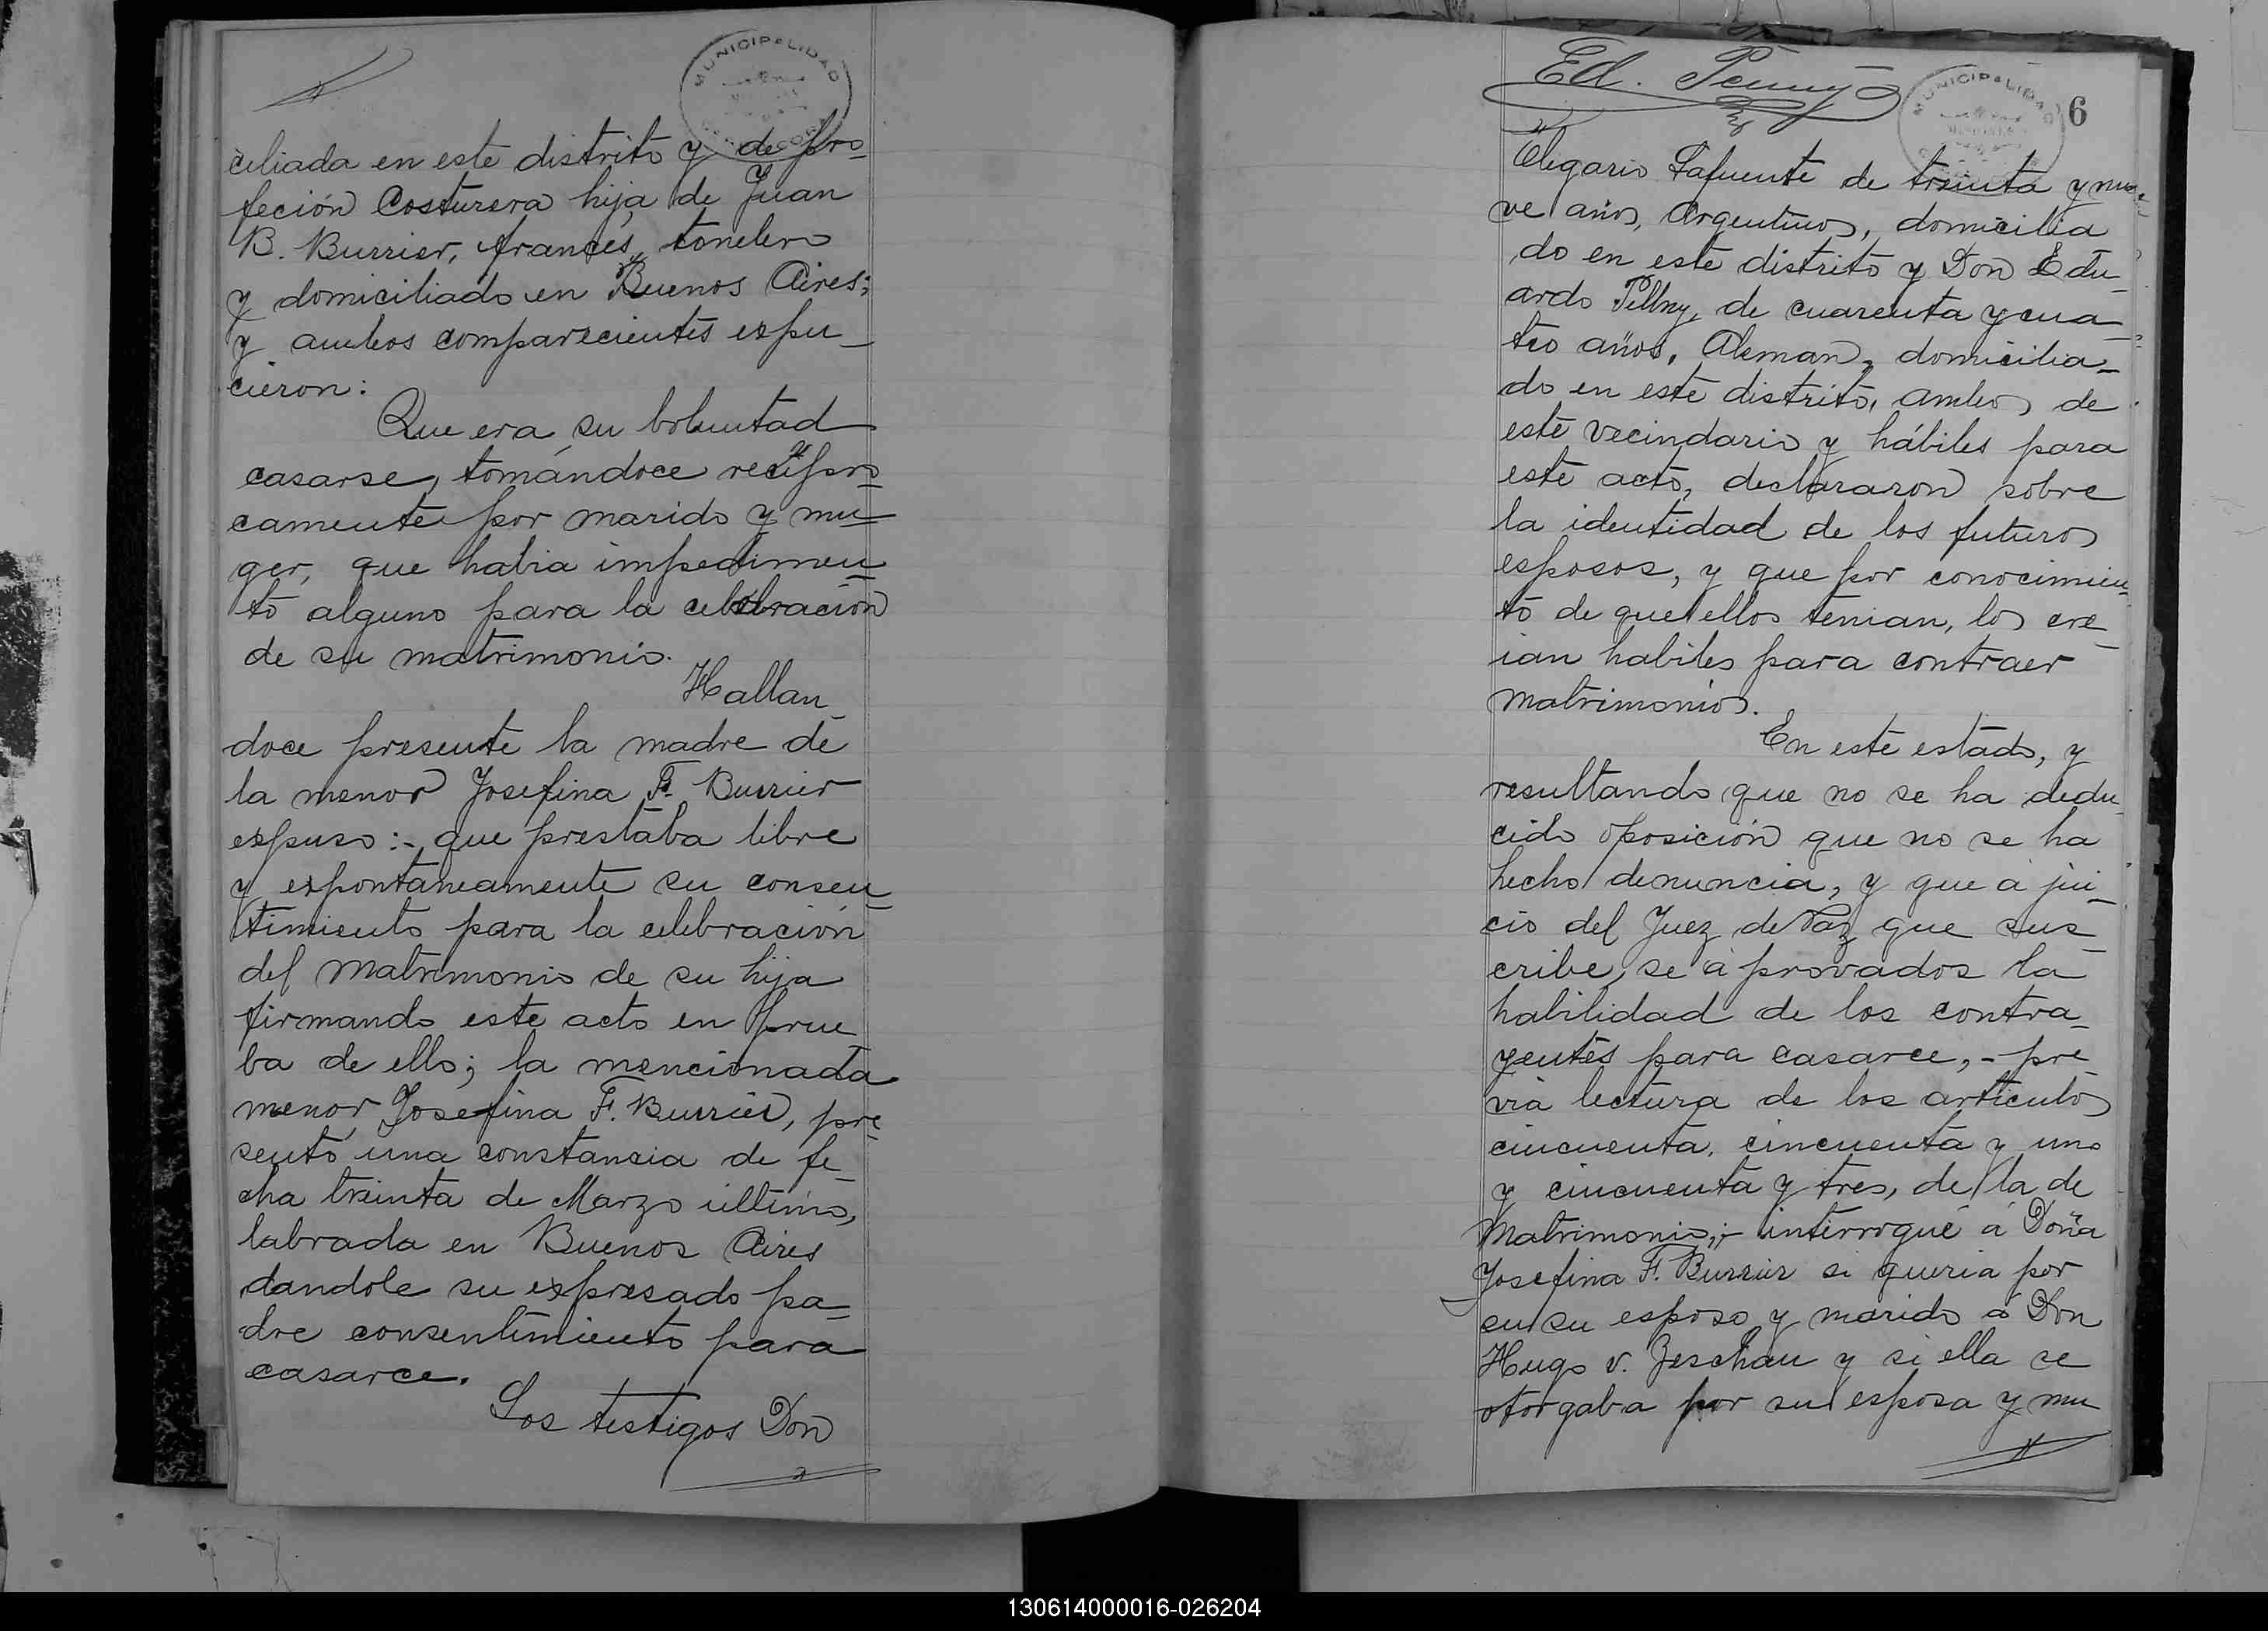 MUNICIPALIDAD
ciliada en este distrito y de pro-
feción Costurera hija de Juan
B. Burrier, francés, tonelero
y domiciliado en Buenos Aires;
y ambos comparecientes expu-
cieron:
Que era su boluntad
casarse, tomándoce recipro-
camente por marido y mu-
ger, que habia impedimen-
to alguno para la celebración
de su matrimonio.
Hallan-
doce presente la madre de
la menor Josefina F. Burrier
expuso:- que prestaba libre
y expontaneamente su consen-
timiento para la celebración
del matrimonio de su hija
firmando este acto en prue-
ba de ello; la mencionada
menor Josefina F. Burrier, pre-
sentó una constancia de fe-
cha treinta de Marzo ultimo,
labrada en Buenos Aires
dandole su expresado pa-
dre consentimiento para
casarce.
Los testigos Don
Ed.
MUNICIPALIDAD
6
Olegario Lafuente de treinta y nue-
ve años, Argentino, domicilia
do en este distrito y Don Edu-
ardo Pellny, de cuarenta y cua-
tro años, Aleman, domicilia-
do en este distrito, ambos de
este vecindario y hábiles para
este acto, declararon sobre
la identidad de los futuros
esposos, y que por conocimien-
to de que ellos tenian, los cre-
ian habiles para contraer
matrimonio.
En este estado, y
resultando que no se ha dedu-
cido oposición que no se ha
hecho denuncia, y que á jui-
cio del Juez de Paz que sus-
cribe, se á provados la
habilidad de los contra-
yentes para casarce,- pre-
via lectura de los articulos
cincuenta, cincuenta y uno
y cincuenta y tres, de la de
Matrimonio;- interrogué á Doña
Josefina F. Burrier si queria por
su su esposo y marido á Don
Hugo v. Zeschau y si ella se
otorgaba por su esposa y mu
130614000016-026204